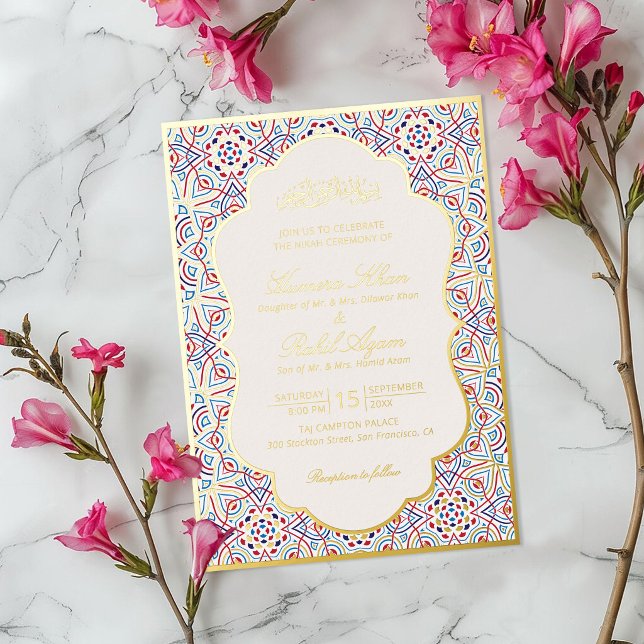 JOIN US TO CELEBRATE
THE NIKAH CEREMONY OF
Khan
Daughter of Mr. & Mrs. Dilawar Khan
&
Rahil Azam
Son of Mr. & Mrs. Hamid Azam
SATURDAY
8:00 PM
15
SEPTEMBER
20XX
TAJ CAMPTON PALACE
300 Stockton Street, San Francisco, CA
Reception to follow